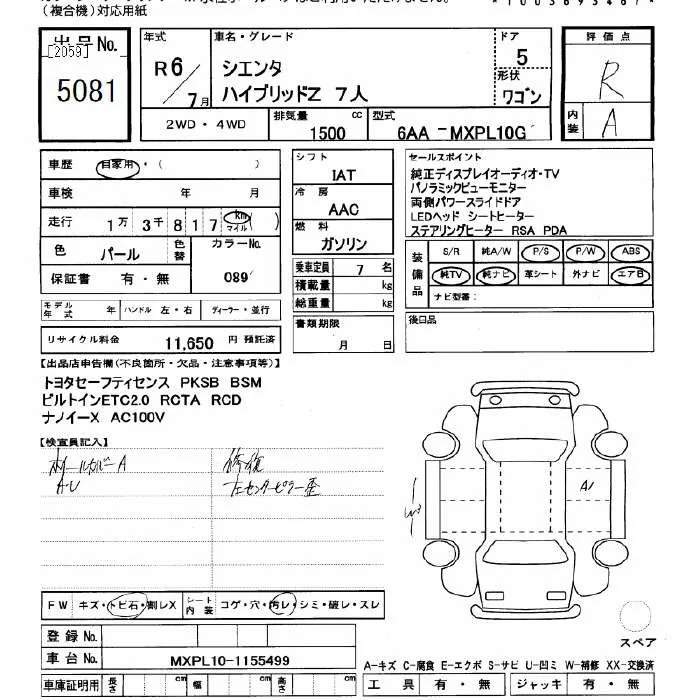 (複合機)対応用紙
出品No.
[2059]
5081
年式
R6/7月
車名・グレード
シエンタ
ハイブリッドZ 7人
ドア
5
形状
ワゴン
評価点
R
内装
A
2WD・4WD
排気量
1500 cc
型式
6AA -MXPL10G
車歴 自家用・( )
車検 年 月
走行 1万 3千 8 1 7 km マイル ( )
色 パール
色替
カラーNo.
089
保証書 有・無
シフト
IAT
冷房
AAC
燃料
ガソリン
乗車定員 7 名
積載量 kg
総重量 kg
セールスポイント
純正ディスプレイオーディオ・TV
パノラミックビューモニター
両側パワースライドドア
LEDヘッド シートヒーター
ステアリングヒーター RSA PDA
装備品
S/R 純A/W P/S P/W ABS
純TV 純ナビ 革シート 外ナビ エアB
ナビ型番:
モデル年式 年 ハンドル 左・右 ディーラー・並行
リサイクル料金 11,650 円 預託済
書類期限
月 日
後日品
【出品店申告欄(不良箇所・欠品・注意事項等)】
トヨタセーフティセンス PKSB BSM
ビルトインETC2.0 RCTA RCD
ナノイーX AC100V
【検査員記入】
ホイールカバーA
A・U
修復
左センターピラー歪
A1
FW キズ・トビ石・割レX
シート内装 コゲ・穴・汚レ・シミ・破レ・スレ
登録No.
車台No. MXPL10-1155499
車庫証明用 長さ cm 幅 cm 高さ cm
スペア
A-キズ C-腐食 E-エクボ S-サビ U-凹ミ W-補修 XX-交換済
工具 有・無 ジャッキ 有・無